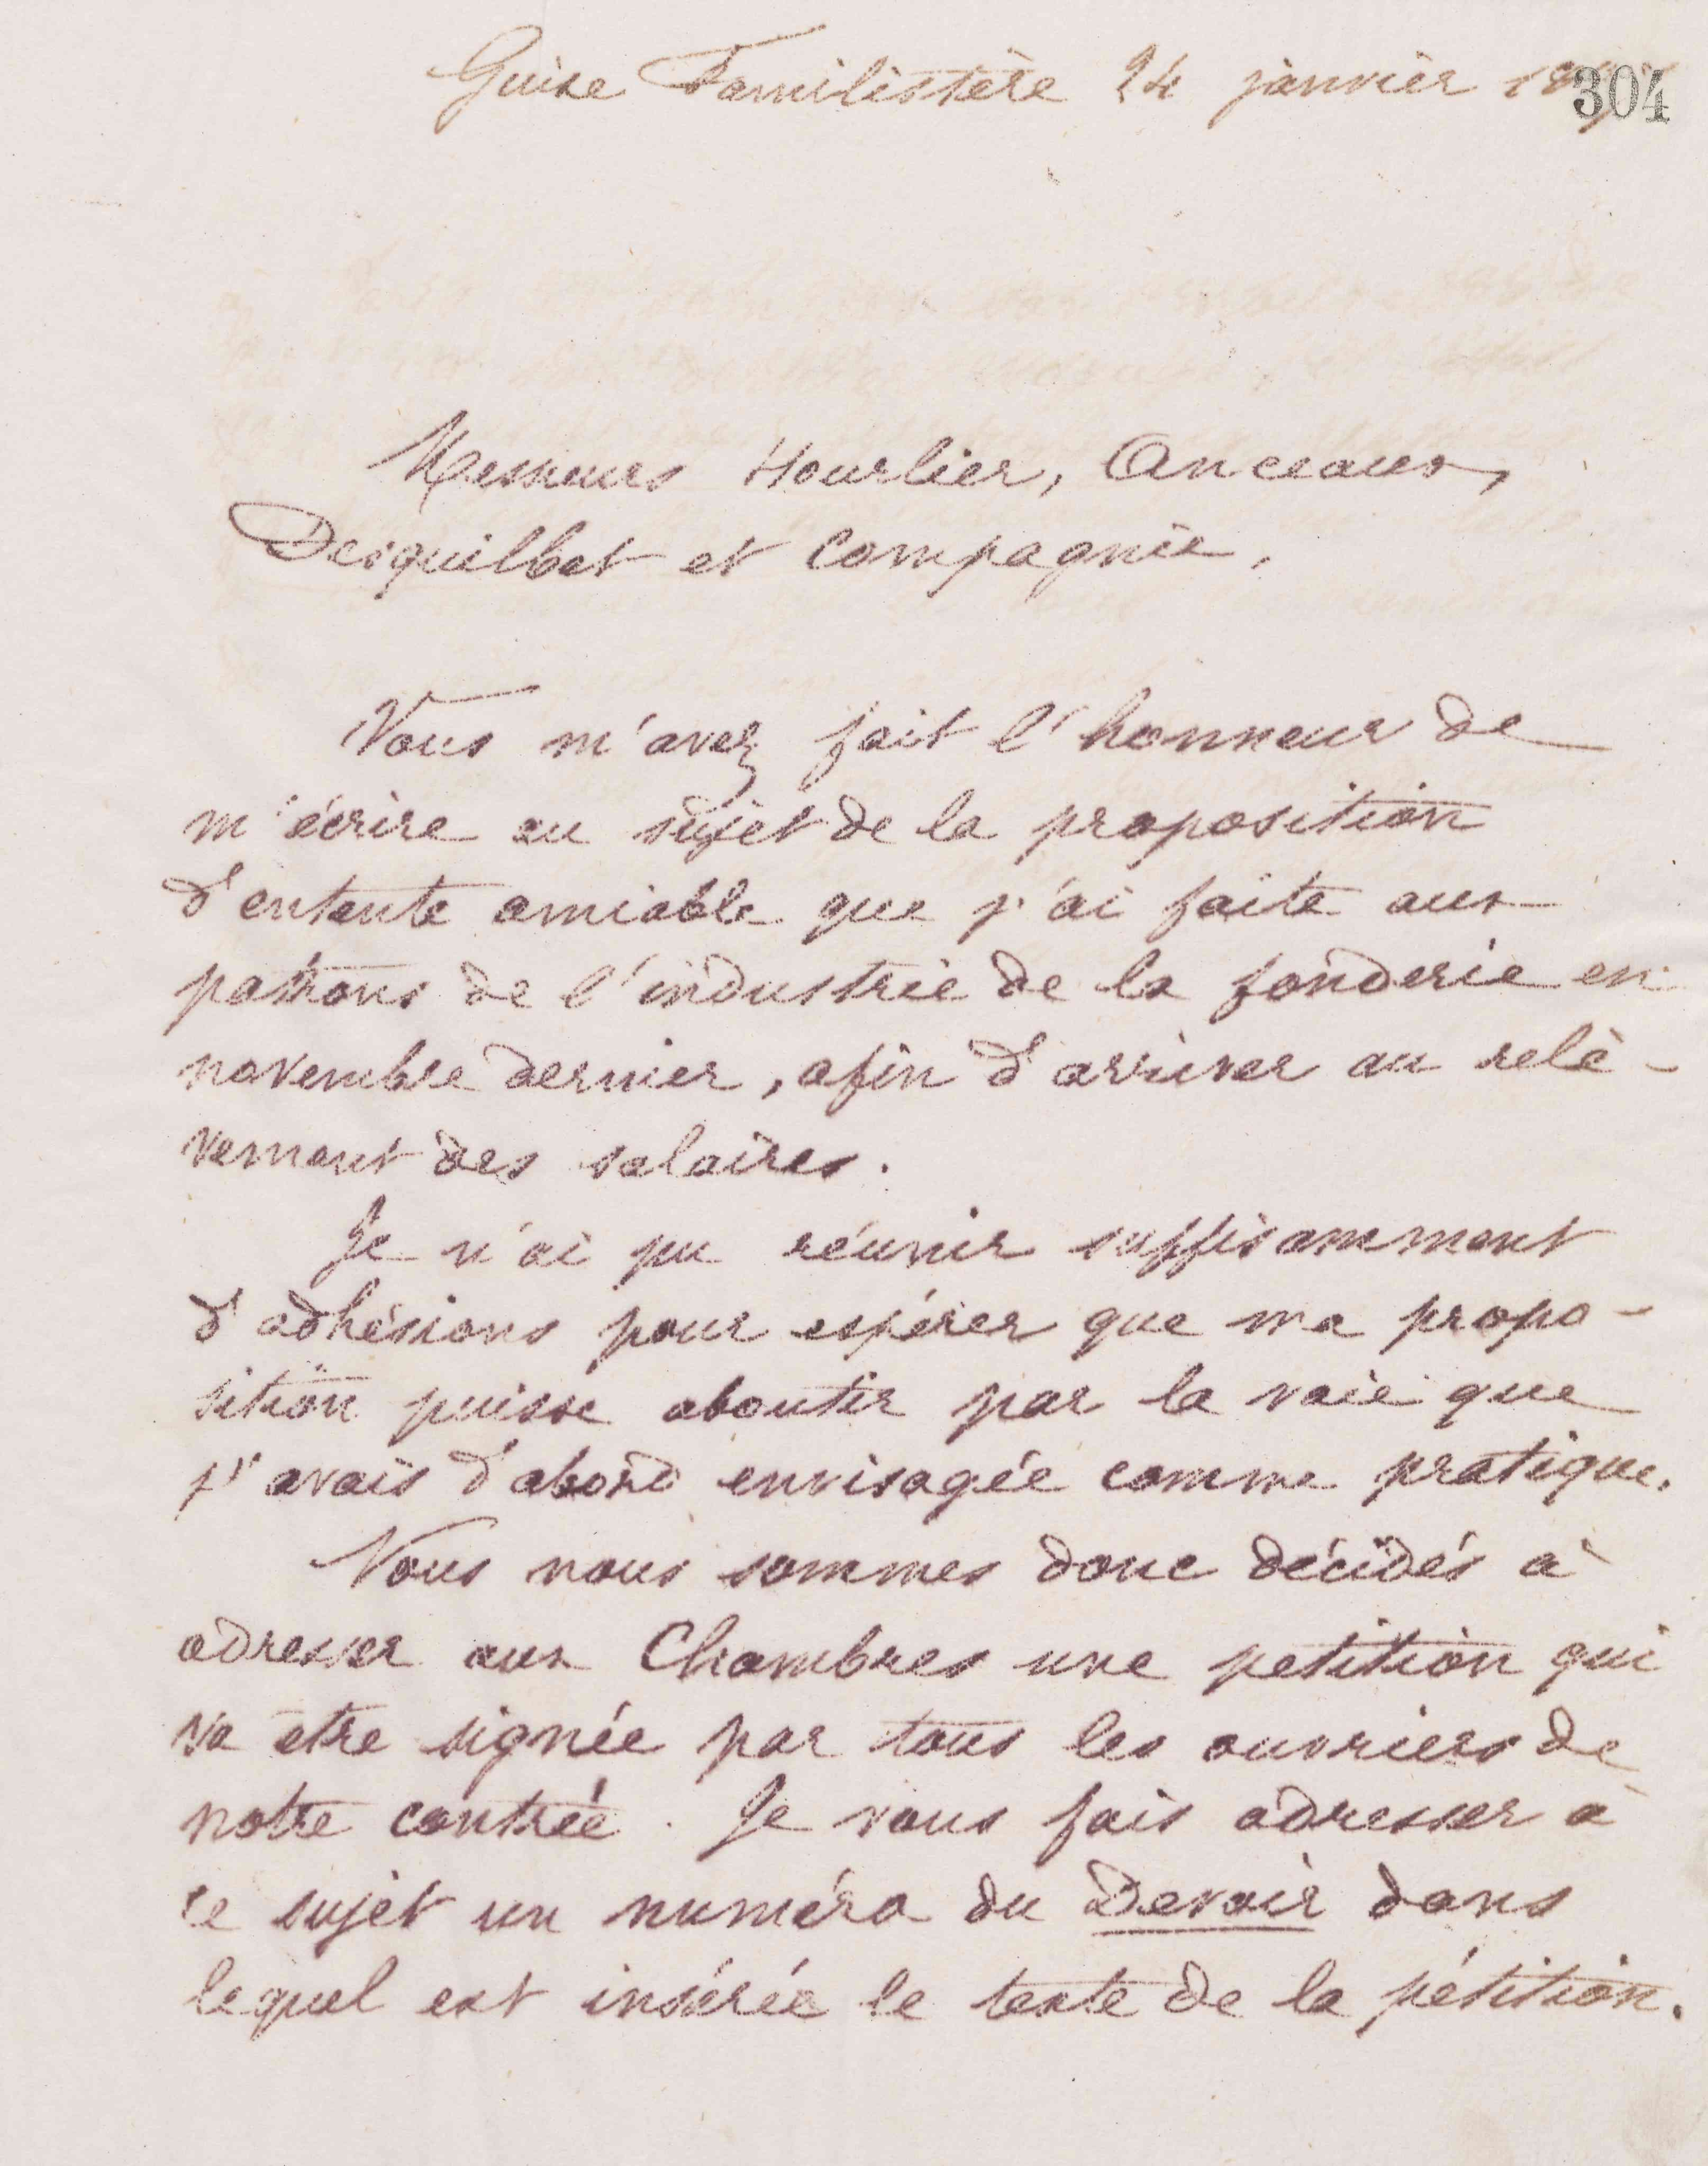 Guise Familistère 24 janvier
304
Messieurs Hourlier, Anceaux,
Desquilbet et compagnie,
Vous m'avez fait l'honneur de
m'écrire au sujet de la proposition
d'entente amiable que j'ai faite aux
patrons de l'industrie de la fonderie en
novembre dernier, afin d'arriver au relè-
vement des salaires.
Je n'ai pu réunir suffisamment
d'adhésions pour espérer que ma propo-
sition puisse aboutir par la voie que
j'avais d'abord envisagée comme pratique.
Nous nous sommes donc décidés à
adresser aux Chambres une petition qui
va etre signée par tous les ouvriers de
notre contrée. Je vous fais adresser à
ce sujet un numéro du Devoir dans
lequel est insérée le texte de la pétition.